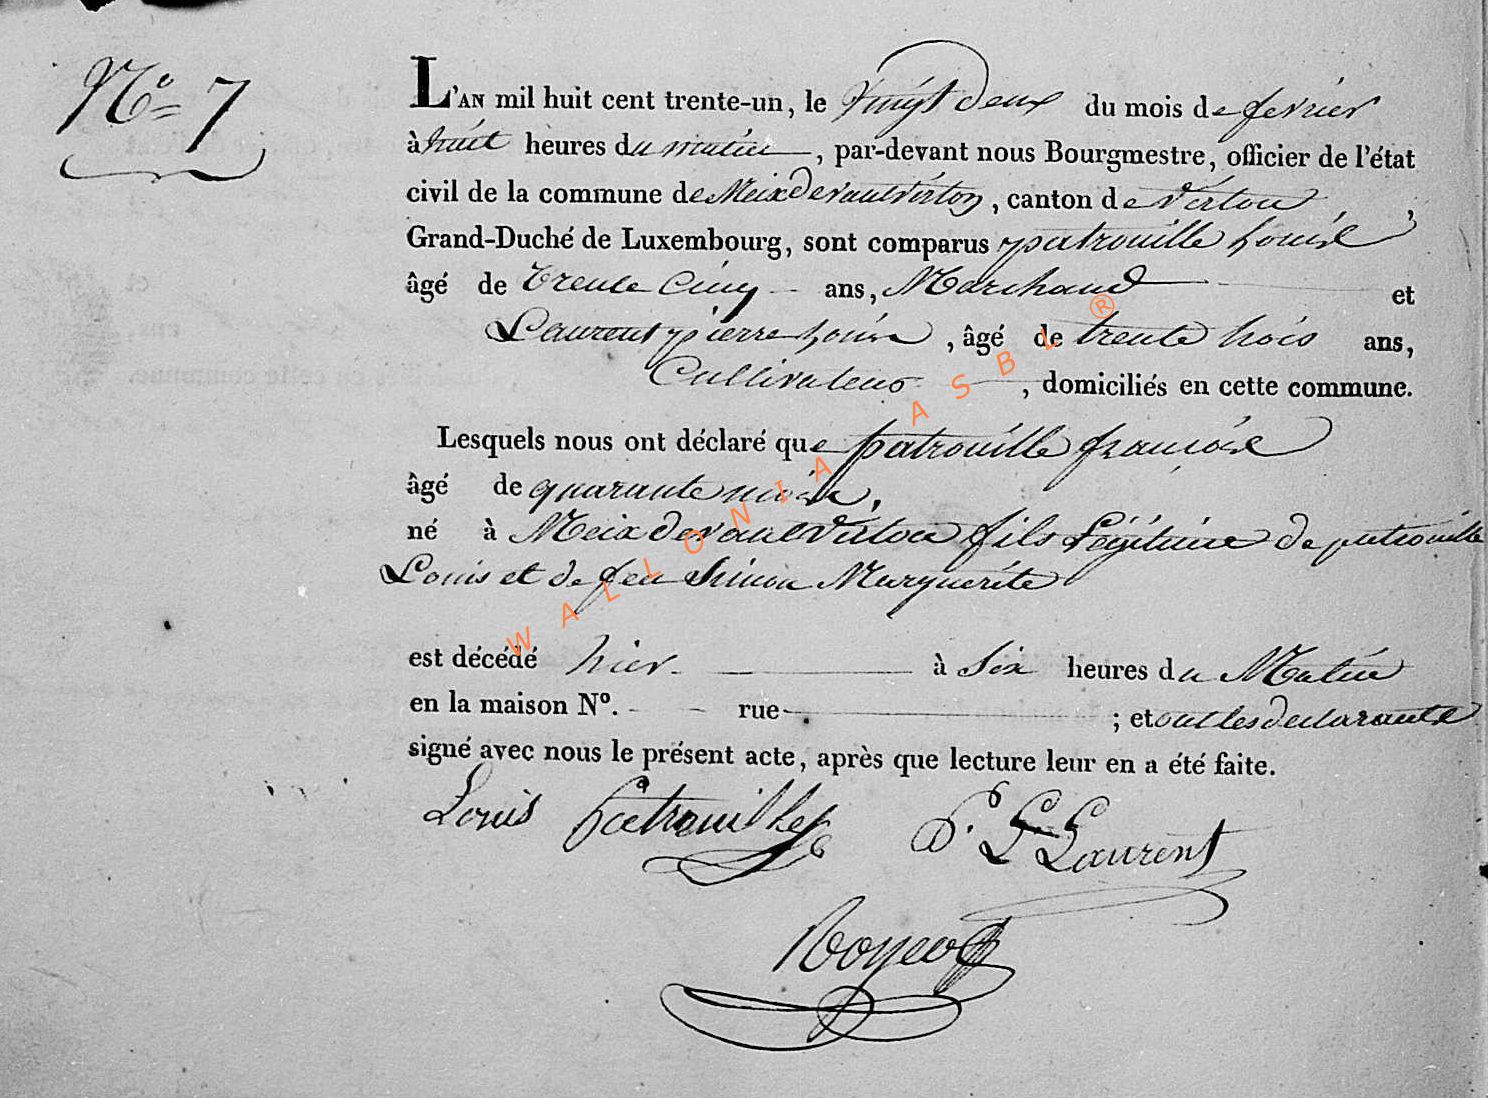 N.º 7
L'AN mil huit cent trente-un, le vingt deux du mois de fevrier
à huit heures du matin, par-devant nous Bourgmestre, officier de l'état
civil de la commune de Meix devant Virton, canton de Virton,
Grand-Duché de Luxembourg, sont comparus patrouille Louis
âgé de trente Cinq ans, Marchand et
Laurent pierre Louis, âgé de trente trois ans,
Cultivateurs, domiciliés en cette commune.
Lesquels nous ont déclaré que patrouille françois
âgé de quarante mois,
né à Meix devant Virton fils Légitime de patrouille
Louis et de feu Simon Marguerite
est décédé hier à Six heures du Matin
en la maison Nº. rue ; et ont les declarants
signé avec nous le présent acte, après que lecture leur en a été faite.
Louis Patrouille P. L. Laurent
WALLONIA ASBL ®